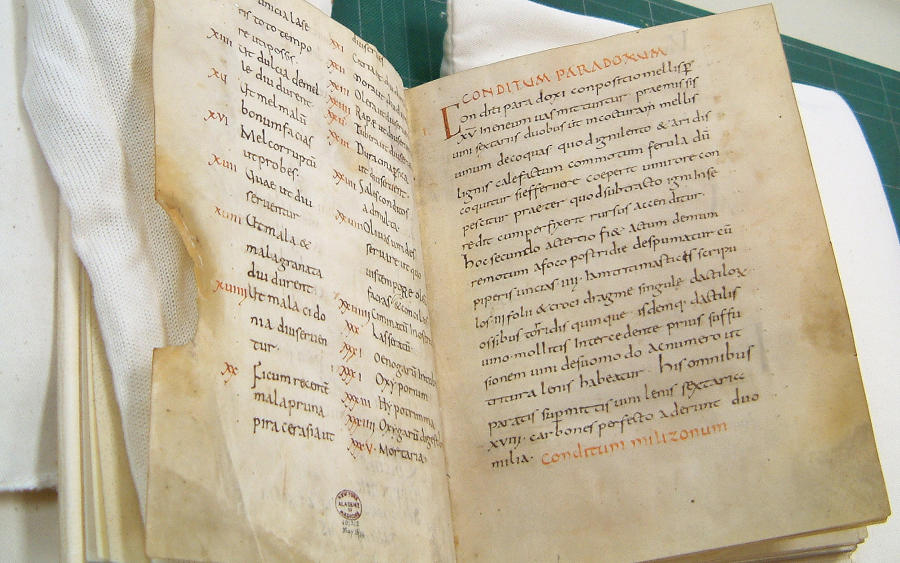 unicia lase
ris toto tempo
re uti possis.
XIIII Ut dulcia de mel
le diu durent
XV Ut mel malū
bonum facias
XVI Mel corruptū
ut probes.
XVII Quae ut diu
serventur
XVIII Ut mala &
mala granata
diu durent
XVIIII Ut mala cido
nia diu serven
tur.
XX Ficum recentē
mala pruna
pira cerasia ut
XXI
XXII
XXIII
XXIIII Rapę ut diu
XXV Tubera ut diu
XXVI Duracina persica
ut diu servent
XXVII Sales conditos
ad multa.
XXVIII Olivas virides
servare ut quo
vis tempore ole
XXVIIII Cuminatū in ostre
XXX Lasseratū.
XXXI Oenogarū
XXXII Oxyporium
XXXIII Hypotrimma
XXXIIII Oxygarū digest
XXXV Mortaria
NEW YORK
ACADEMY
OF
MEDICINE
CONDITUM PARADOXUM
I Conditi paradoxi conpositio mellis p̄
XV in eneum vas mittuntur praemissis
vini sextariis duobus ut in cocturam mellis
vinum decoquas quod igni lento & aridis
lignis calefactum commotum ferula dū
coquitur si effervere coeperit vini rore con
pescitur praeter quod subtracto igni in se
redit cum perfrixerit rursus accenditur
hoc secundo ac tertio fi& ac tum demum
remotum a foco postridie despumatur cū
piperis uncias IIII. hamtrimastices scripu
los III folii & croci dragme singulę dactilor
ossibus torridis quinque isdemq. dactilis
vino mollitis intercedente prius suffu
sionem vini de suo modo ac numero ut
tritura lenis habeatur. his omnibus
paratis supmittis vini lenis sextarios
XVIII. carbones perfecto aderunt duo
milia. Conditum milizonum